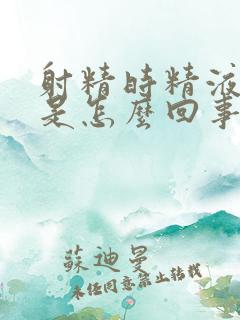 射精時精液
是怎麼回事
蘇迪曼
未经同意禁止转载